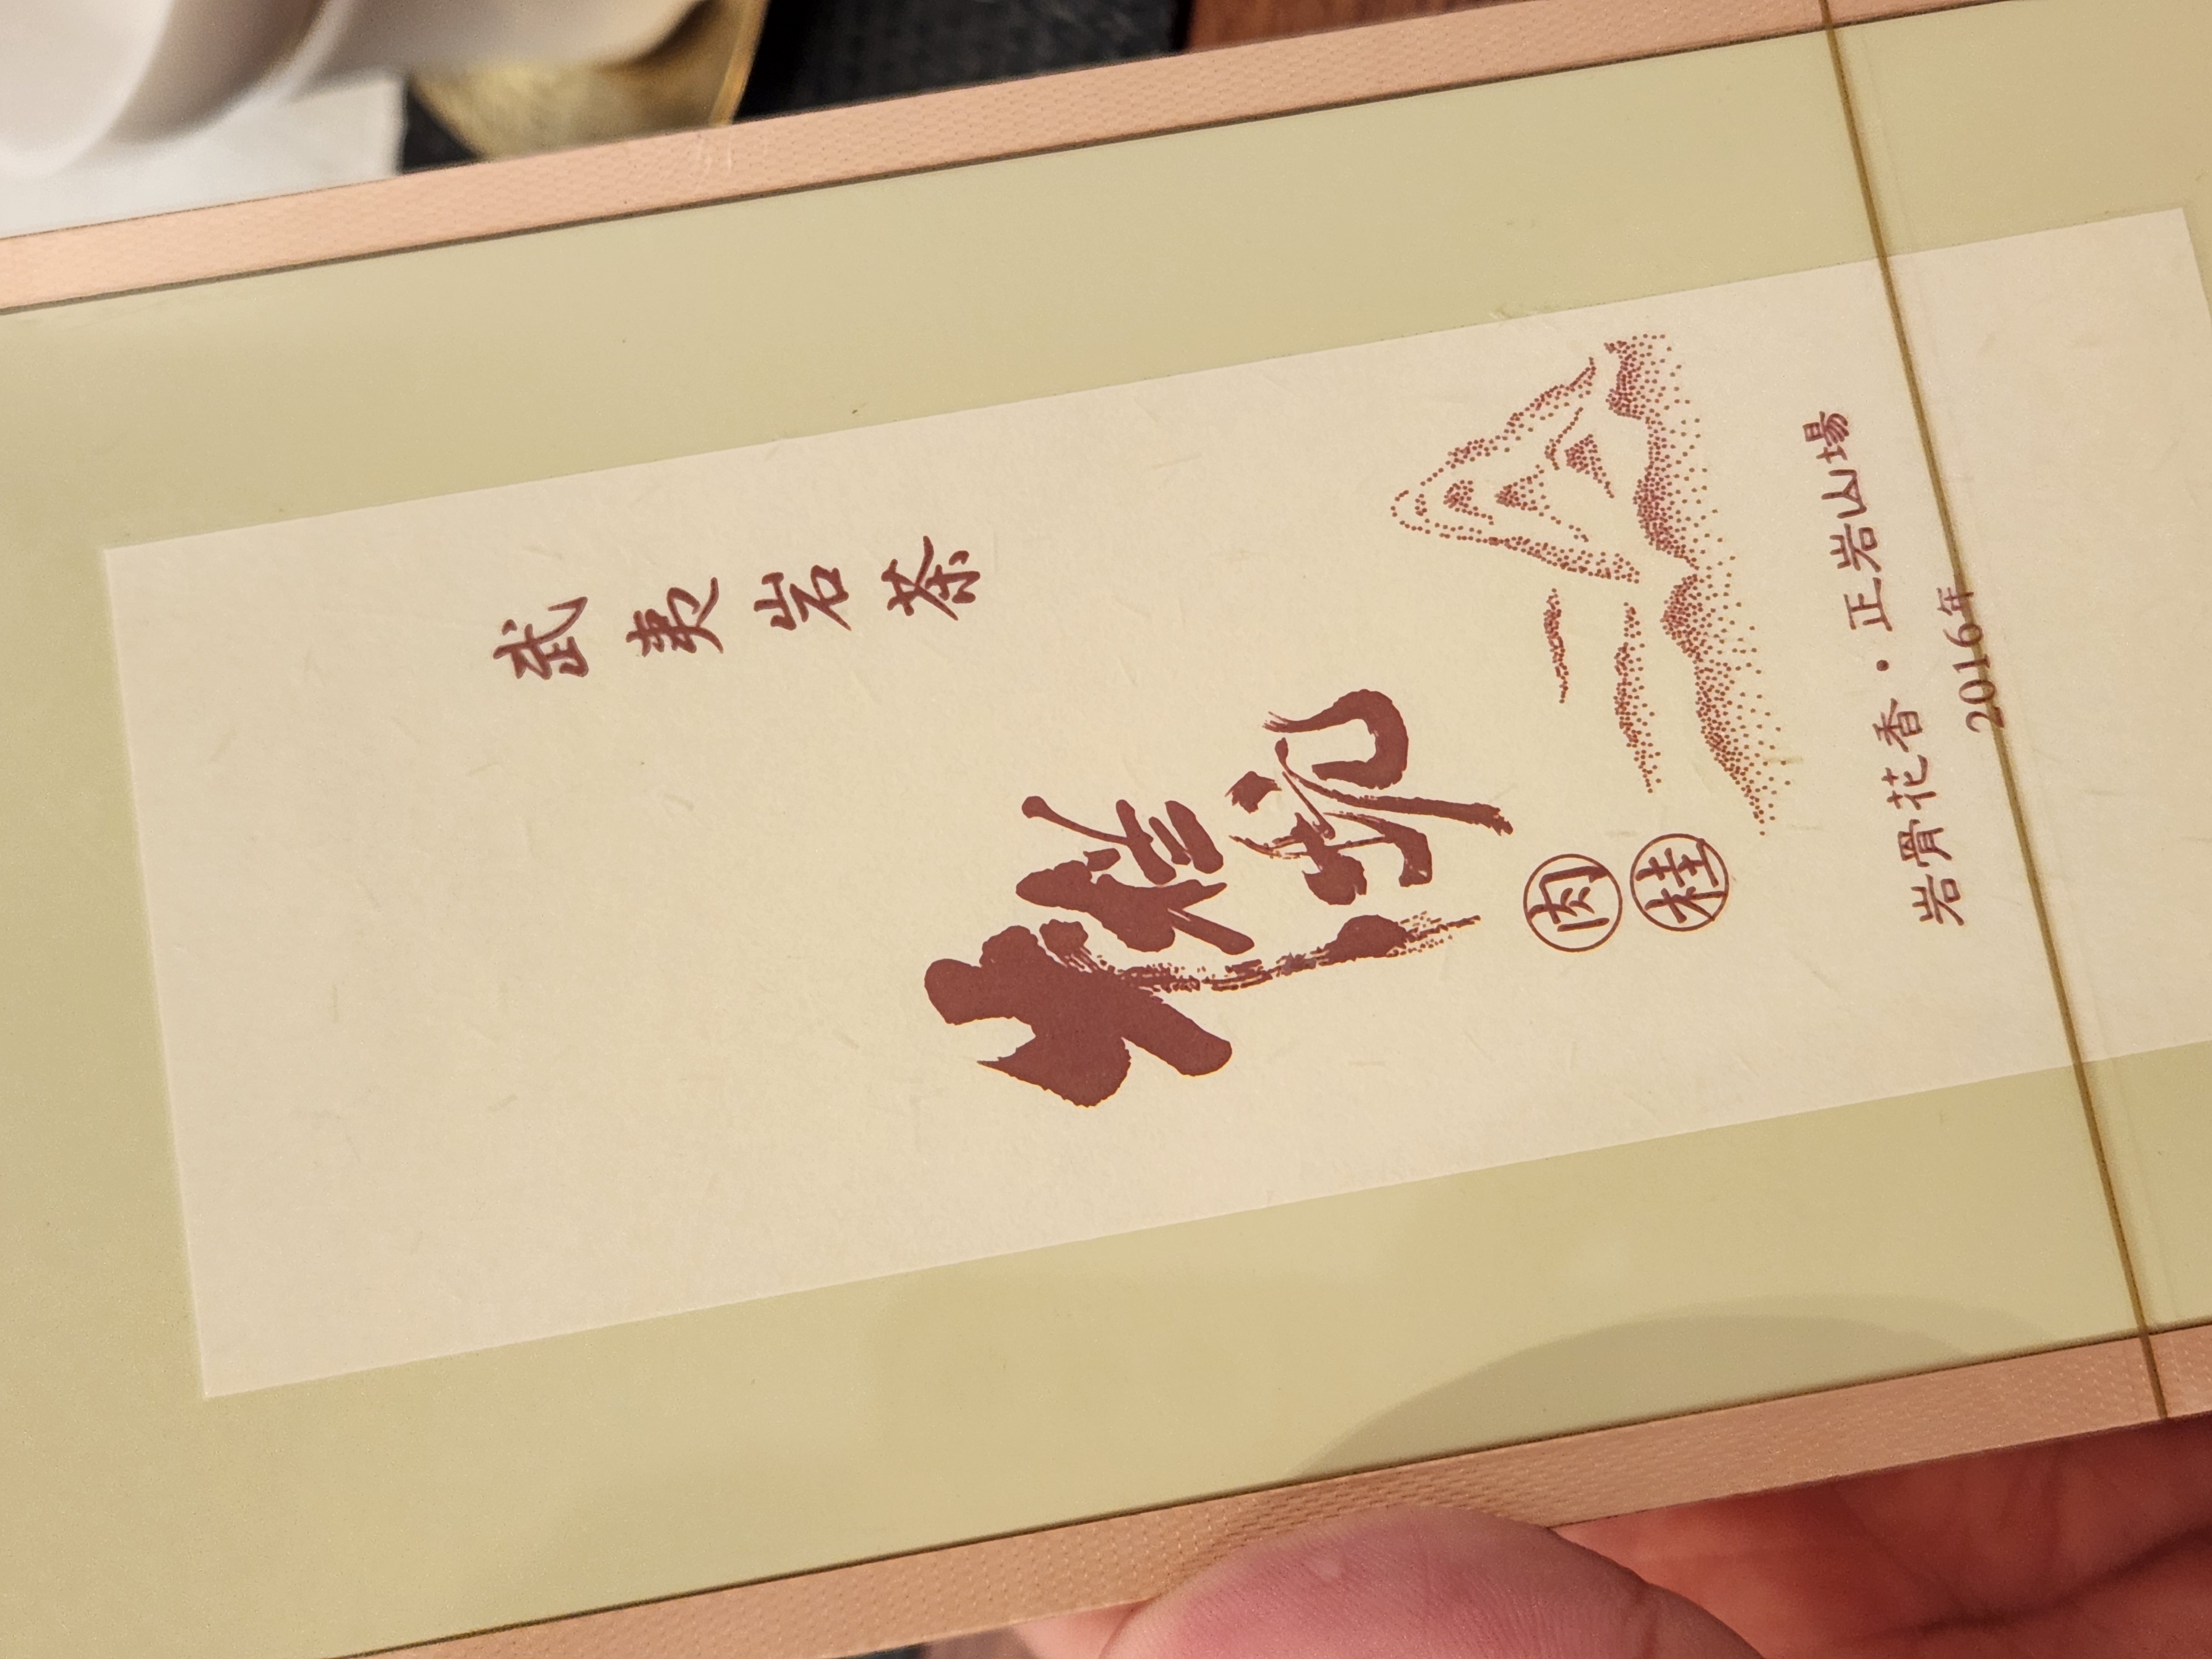 武夷岩茶
牛栏坑
肉桂
岩骨花香·正岩山場
2016年